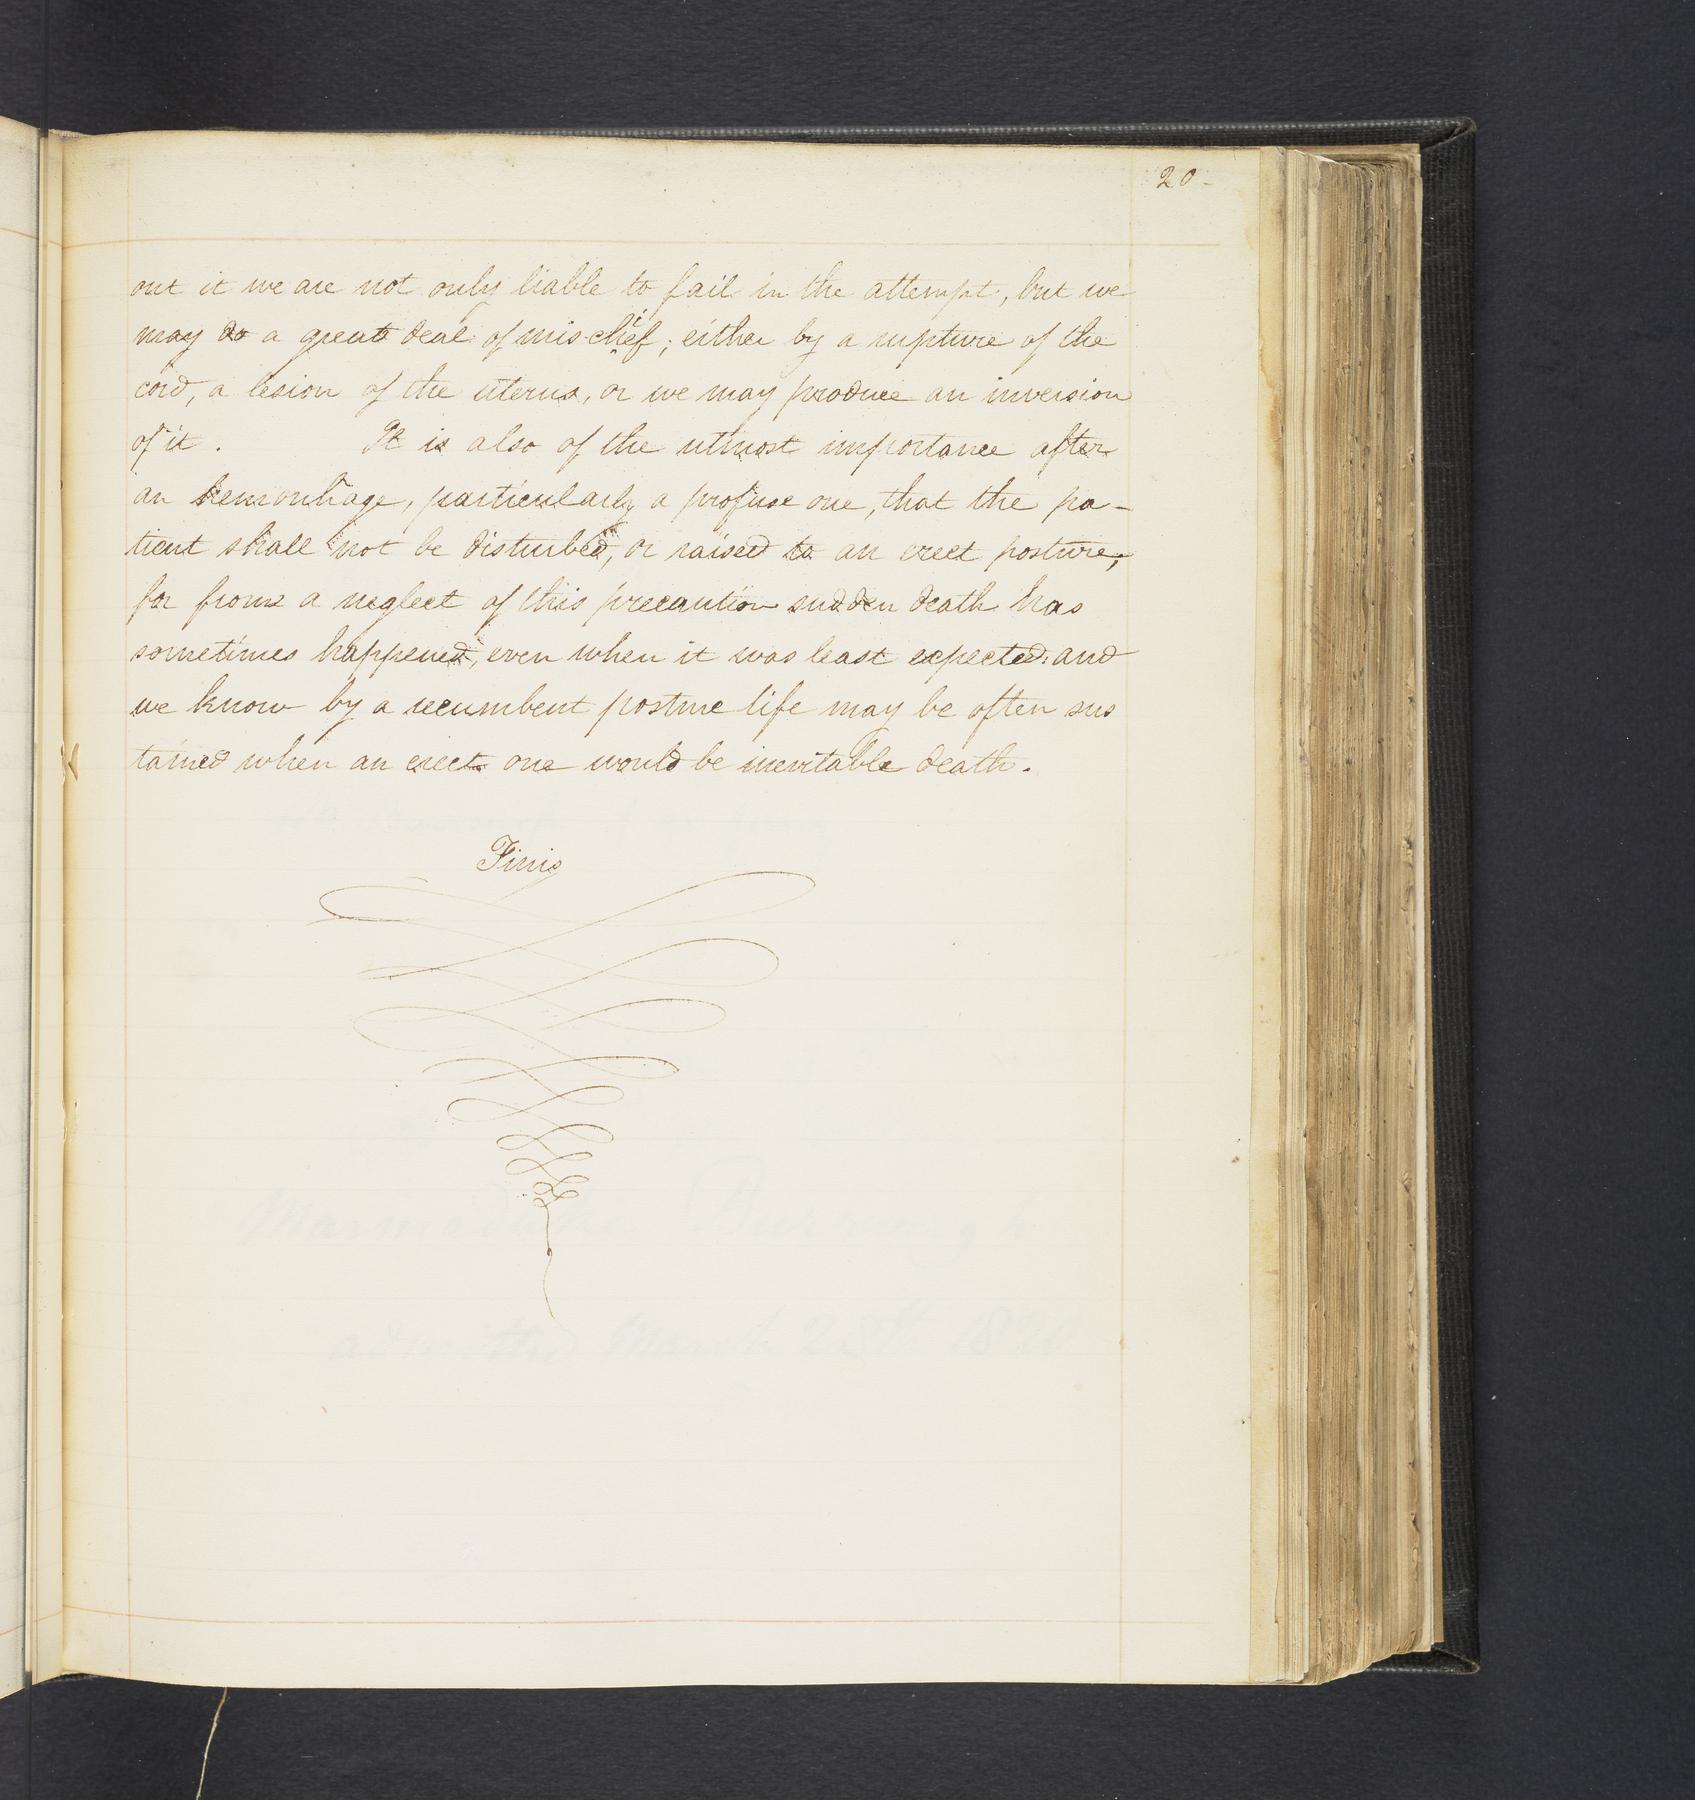 20-
out it we are not only liable to fail in the attempt, but we
may do a great deal of mischief; either by a rupture of the
cord, a lesion of the uterus, or we may produce an inversion
of it. It is also of the utmost importance after
an hemorrhage, particularly a profuse one, that the pa-
tient shall not be disturbed, or raised to an erect posture,
for from a neglect of this precaution sudden death has
sometimes happened, even when it was least expected: and
we know by a recumbent posture life may be often sus
tained when an erect one would be inevitable death.
Finis
admitted March 28th 1820